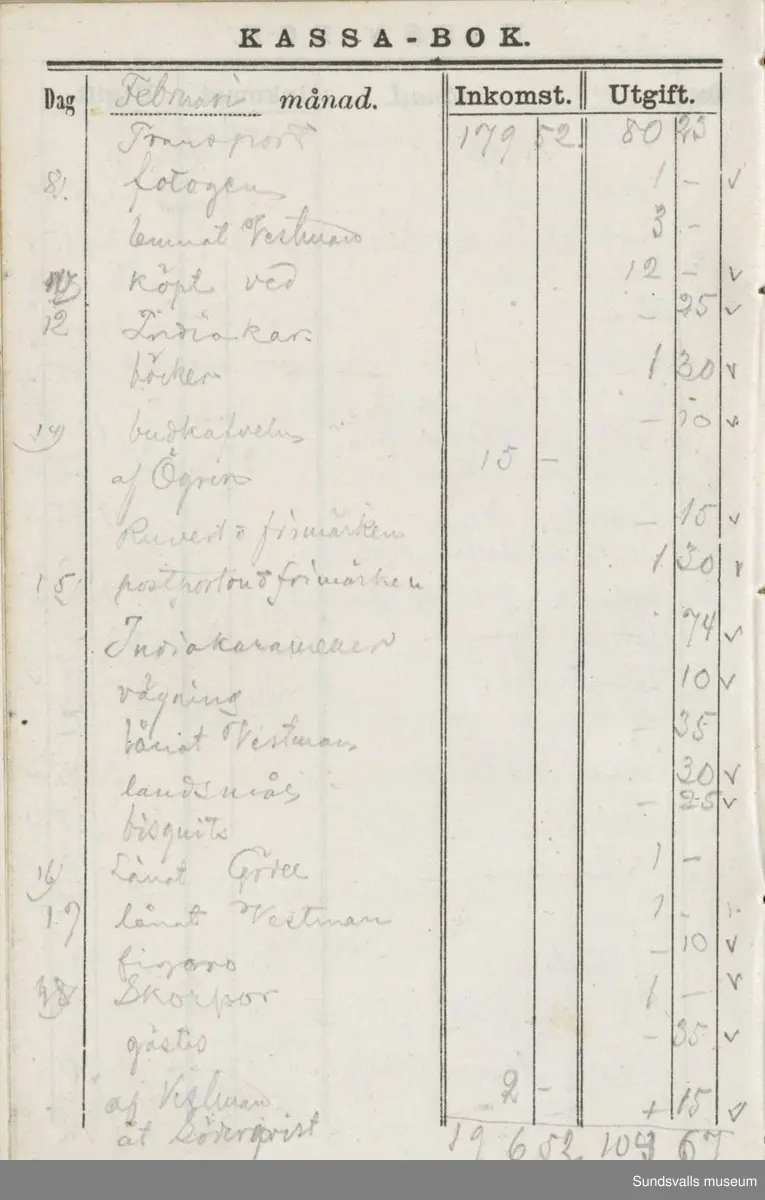 KASSA-BOK.
Dag Februari månad. Inkomst. Utgift.
Transport 179 52 80 23
8). fotogen 1 - v
Vestman 3 -
köpt ved 12 - v
12 India kar. - 25 v
böcker 1 30 v
14) budkafveln - 10 v
af Ögren 15 -
Kuvert o frimärken - 15 v
15 postporto frimärken 1 30 v
Indiakarameller 74 v
vägning 10 v
lånat Vestman - 35
landsmål 30 v
bisquits - 25 v
16) Lånat 1 -
17) lånat Vestman 1 -
figaro - 10 v
18) Skorpor 1 - v
- 35 v
af Vestman 2 -
åt Söderqvist + 15 v
196 52 104 67
Sundsvalls museum